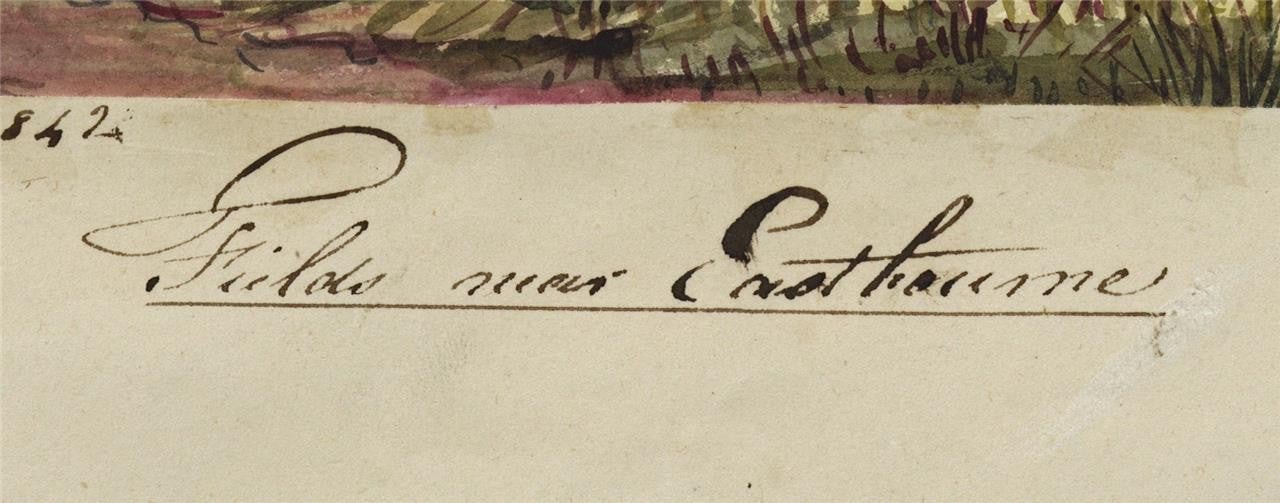 842
Fields near Eastbourne